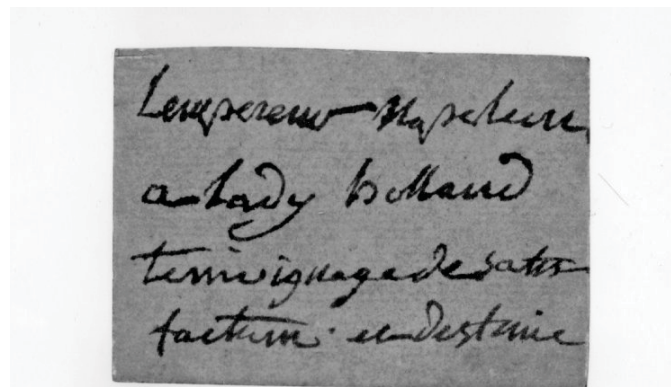 L'empereur Napoleon
a Lady Holland
temoignage de satis
faction et destime